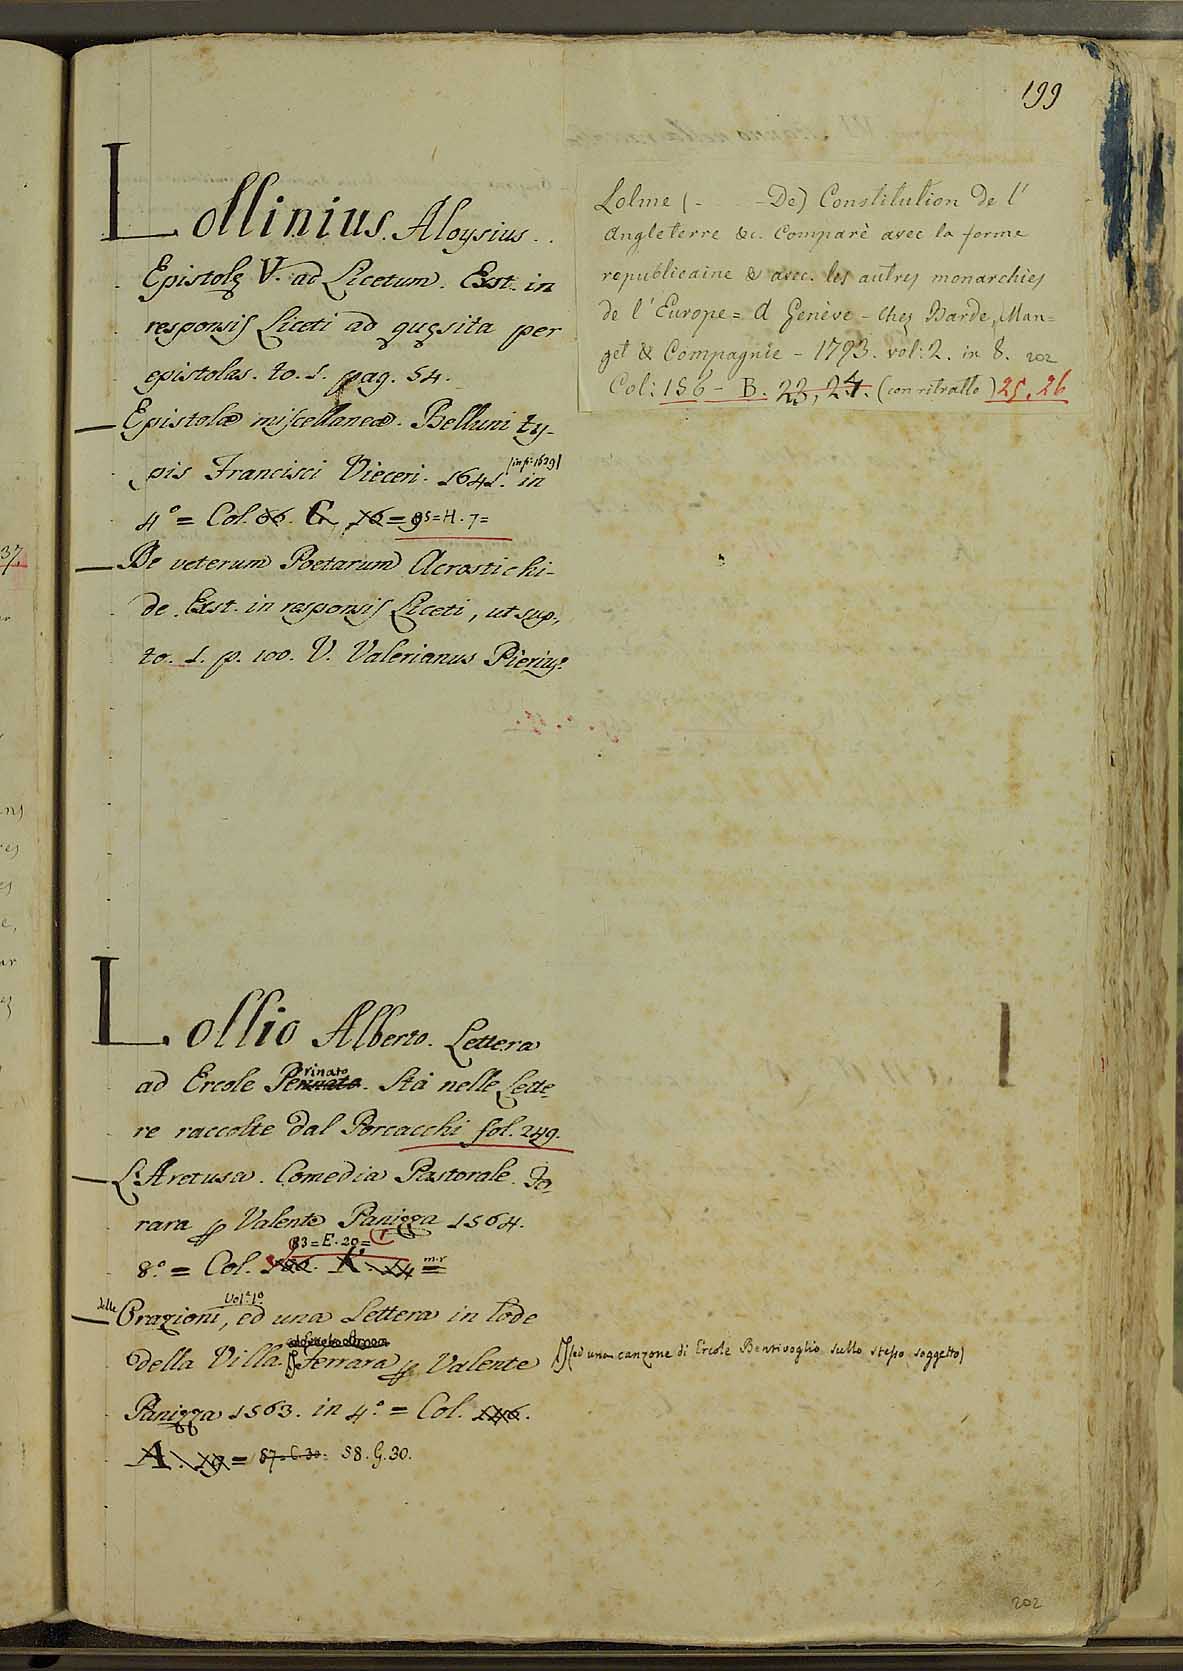 199
Lollinius. Aloysius..
Epistolę V. ad Licetum. Exst. in
responsis Liceti ad quęsita per
epistolas. to. 1. pag. 54.
— Epistolæ miscellaneæ. Belluni ty-
pis Francisci Vieceri. 1641. (in fi: 1629) in
4° = Col. 86. C. 16 = 95 = H. 7 =
— De veterum Poetarum Acrostichi-
de. Exst. in responsis Liceti, ut sup.,
to. 1. p. 100. V. Valerianus Pierius.
Lolme ( - - De) Constitution de l'
Angleterre &c. Comparè avec la forme
republicaine & avec les autres monarchies
de l'Europe = A Genève - chez Barde, Man=
get & Compagnie - 1793. vol: 2. in 8. 202
Col: 156 - B. 23, 24. (con ritratto) 25, 26
Lollio Alberto. Lettera
ad Ercole Perinato. Stà nelle Lette-
re raccolte dal Porcacchi fol. 249.
— L'Aretusa. Comedia Pastorale. Fe-
rara p Valente Panizza 1564.
83 = E. 20 =
8.° = Col. K. 14 = m.r
— delle Orazioni, Vol.e 1.o ed una Lettera in lode
della Villa. Ferrara p Valente
(ed una canzone di Ercole Bentivoglio sullo stesso soggetto)
Panizza 1563. in 4.° = Col. 146.
A. 19 = 87. C. 30. 58. G. 30.
202
37.